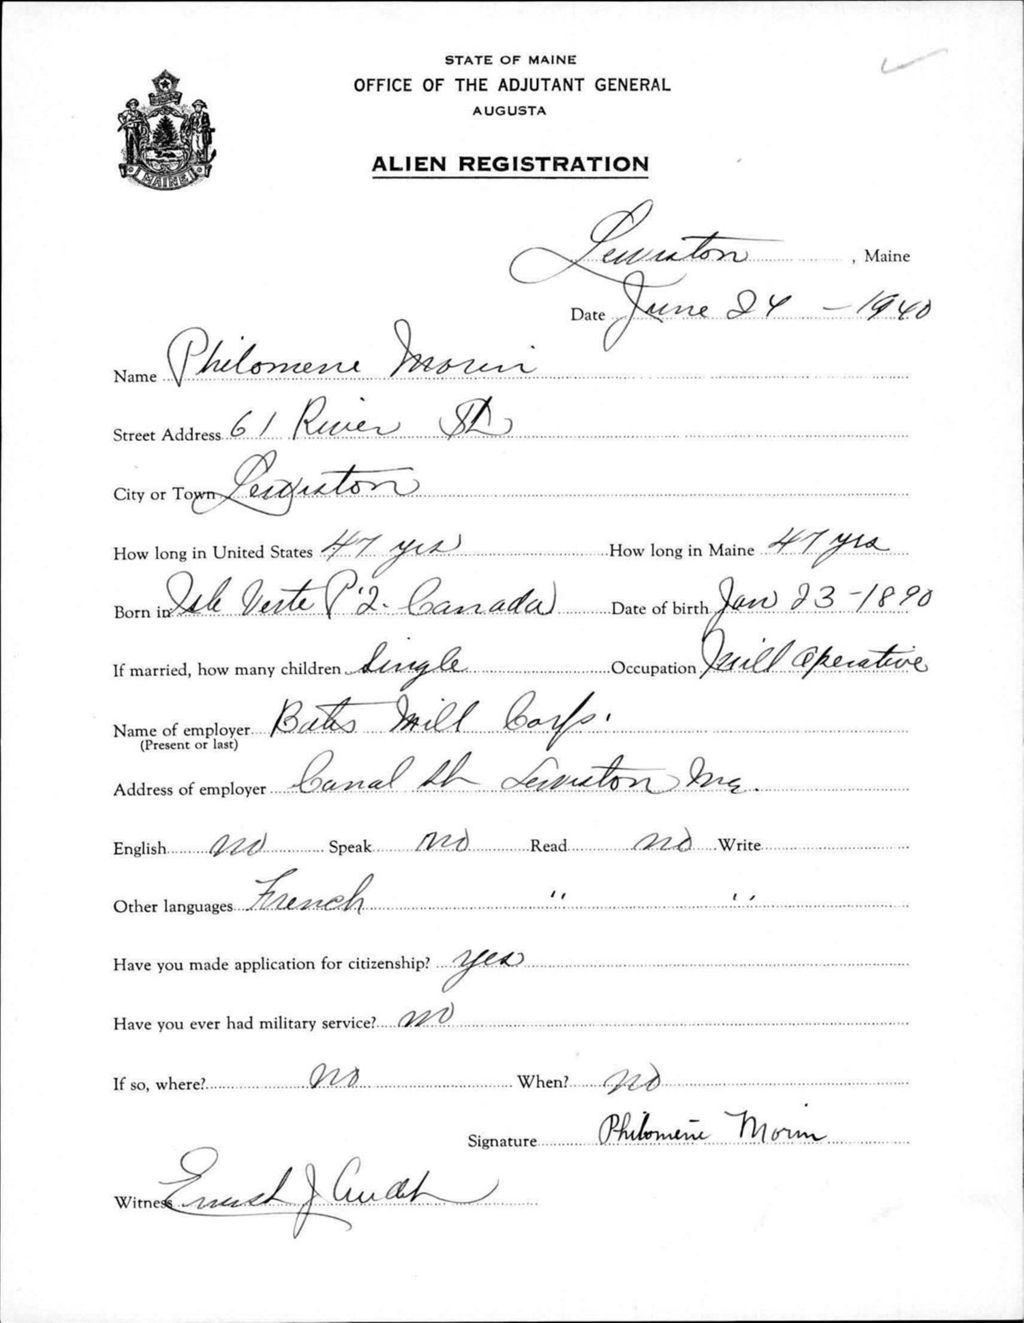 STATE OF MAINE
OFFICE OF THE ADJUTANT GENERAL
AUGUSTA
ALIEN REGISTRATION
MAINE
Lewiston, Maine
Date June 24 - 1940
Name Philomene Morin
Street Address 61 River St
City or Town Lewiston
How long in United States 47 yrs How long in Maine 47 yrs
Born in Isle Verte P.Q. Canada Date of birth Jan 23 - 1890
If married, how many children Single Occupation Mill Operative
Name of employer Bates Mill Corp.
(Present or last)
Address of employer Canal St Lewiston Me.
English no Speak no Read no Write
Other languages French " "
Have you made application for citizenship? yes
Have you ever had military service? no
If so, where? no When? no
Signature Philomene Morin
Witness J Audet